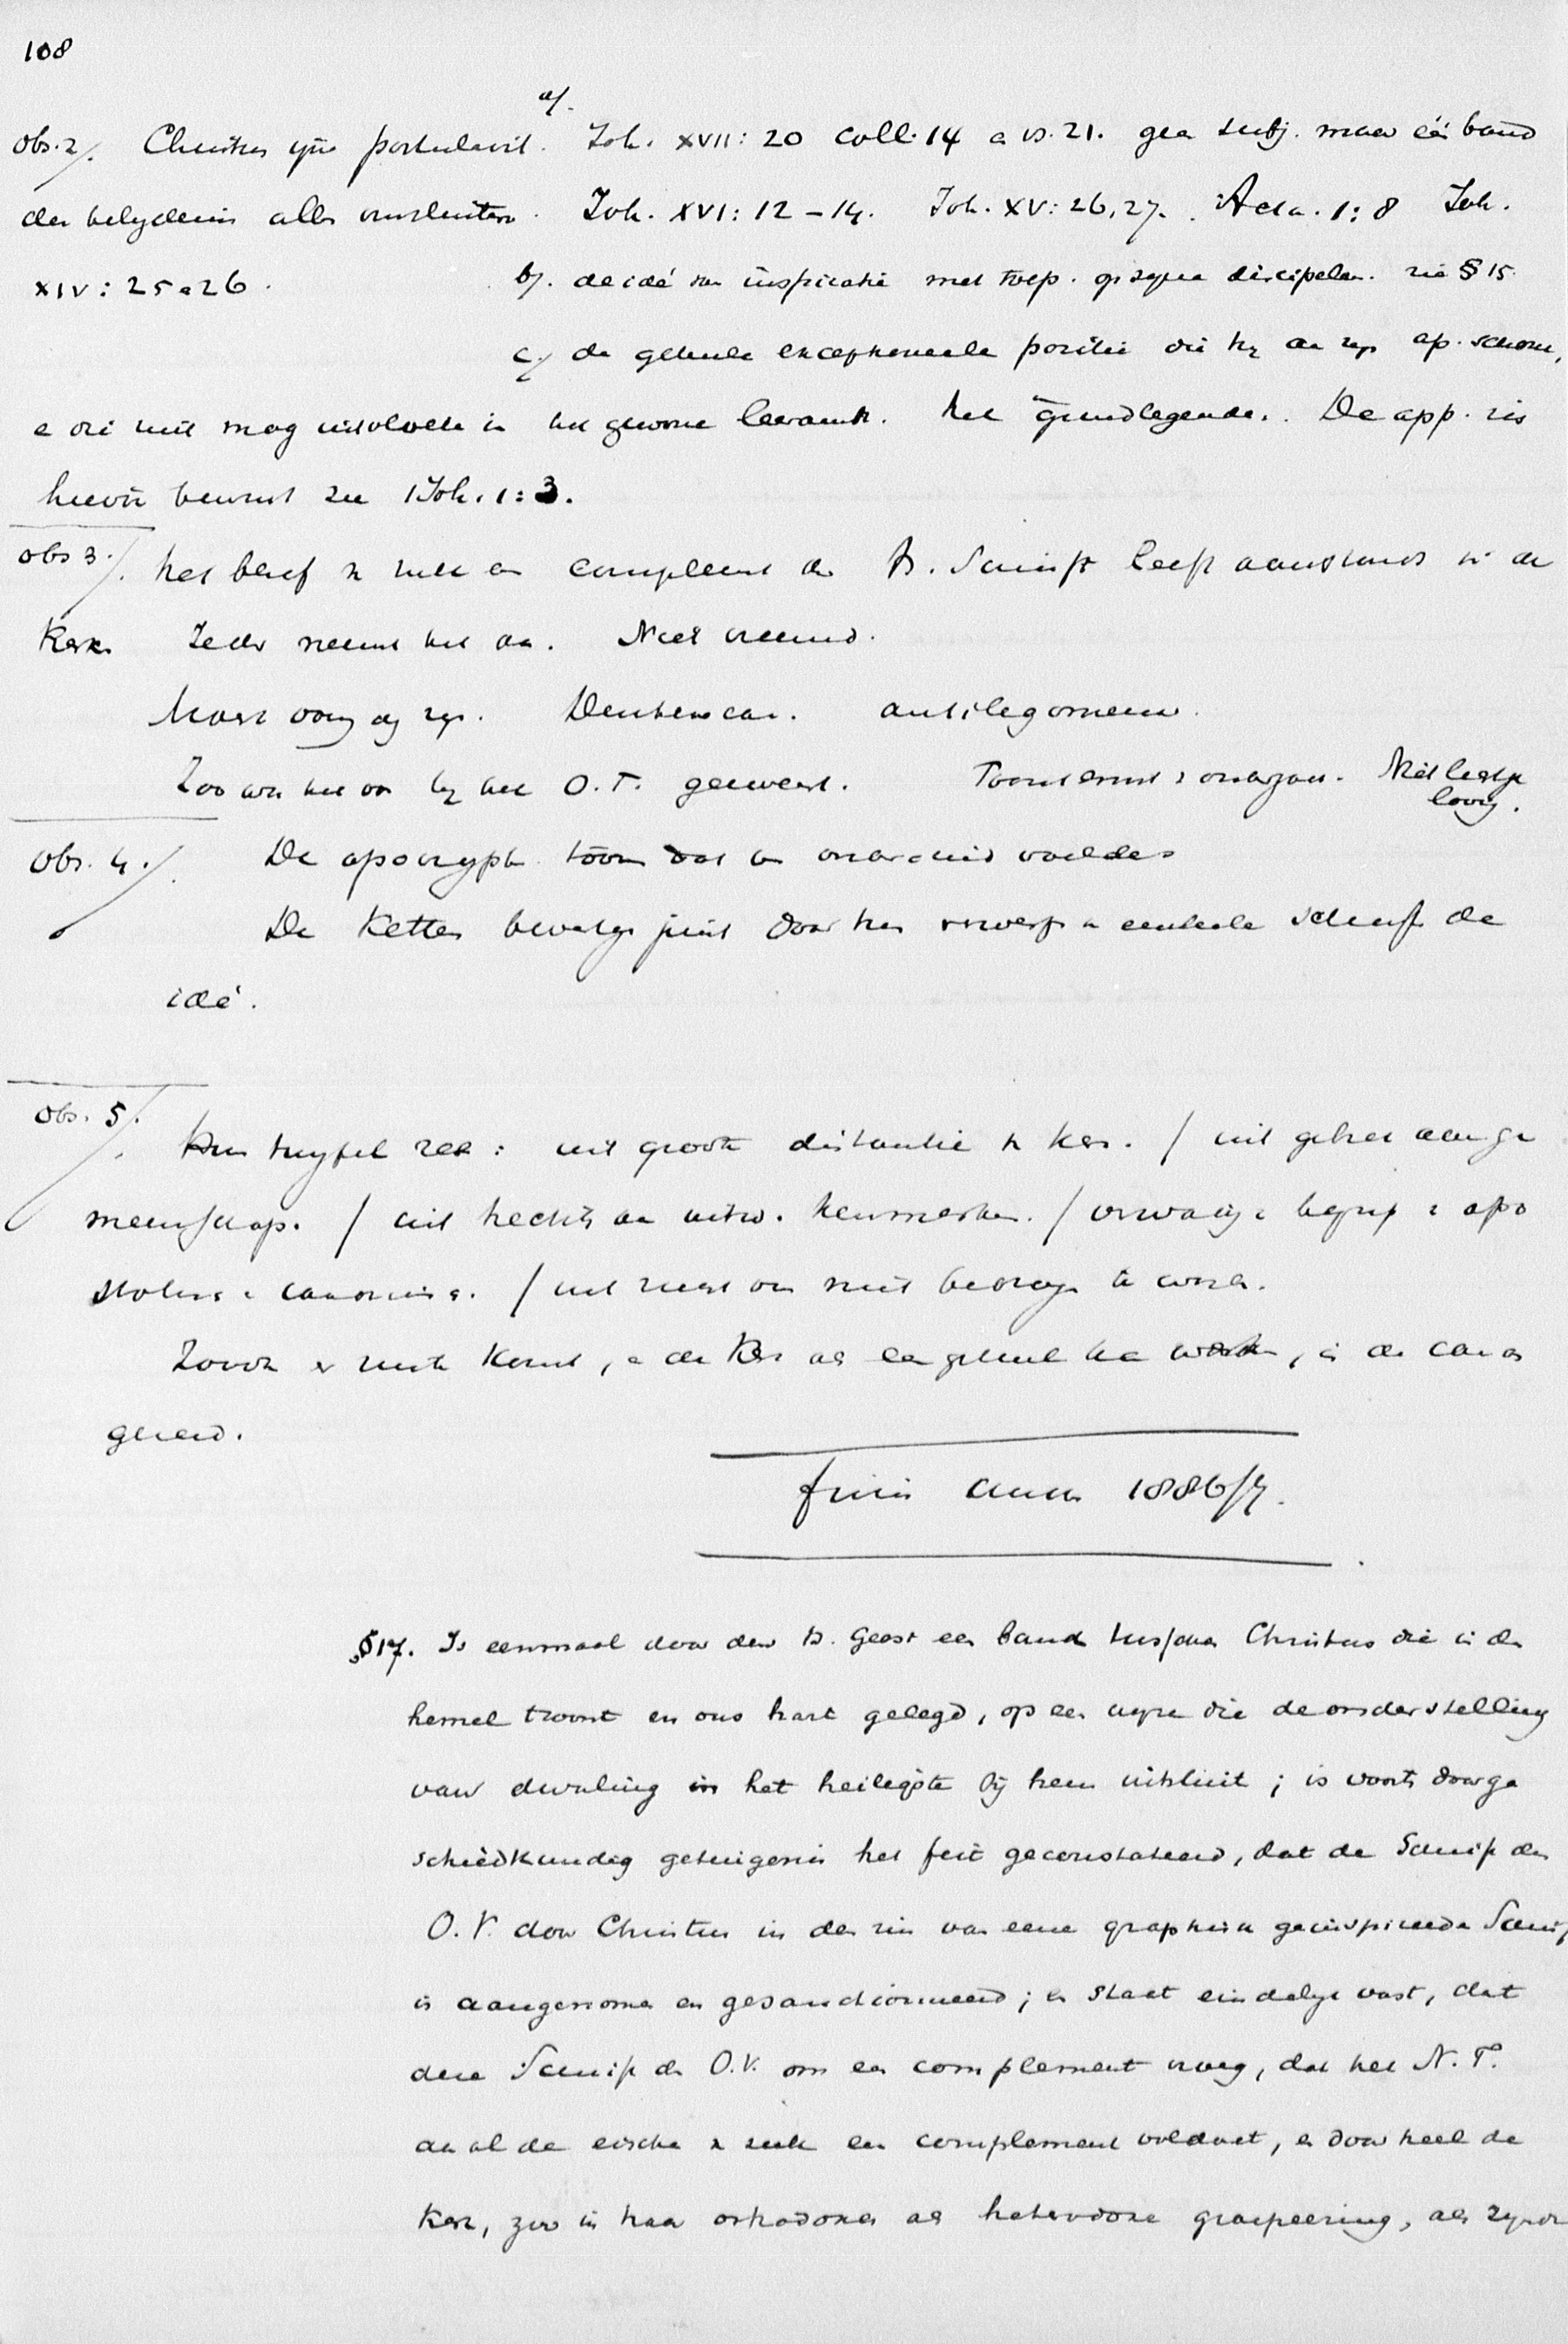 108
a/.
Obs. 2/. Christus ipse postulavit. Joh. XVII: 20 coll. 14 a vs. 21. geen subj. maar één band
der belijdenis allen omsluitend. Joh. XVI: 12 – 14. Joh. XV: 26, 27. Acta. 1: 8 Joh.
XIV: 25 a 26. b/. de idé van inspiratie met toep. op zijne discipelen. zie § 15.
c/ de geheele exceptioneele positie die hij aan zijn ap. schonk,
e die niet mag uitvloeien in het gewone leeraamb. het grondlegende. De app. zijn
hiervan bewust zie 1 Joh. 1: 3.
Obs 3./. het besef v zulk een complement der H. Schrift leeft aanstonds in de
Kerk Ieder neemt het aan. Niet vreemd.
Maar Deuterocan. antilegomena.
Zoo was het ook bij het O. T. geweest. Toont ernst onderzoek. Niet
Obs. 4./. De apocryphen toonen dat
De Ketters bevestigen juist door hun verwerpen enkele schrift de
idé.
Obs. 5/. Hun twijfel zeer: uit groote distantie v Kerk. / uit gebrek aan ge
meenschap. / uit hechten aan uitw. kenmerken. / verwarring v begrip v apo
stolisch canonisch. / uit vrees om niet bedrogen te worden.
Zoodra er rust komt, e de Kerk als een geheel kan werken, is de canon
gereed.
Finis anni 1886/7.
§ 17. Is eenmaal door den H. Geest een band tusschen Christus die in den
hemel troont en ons hart gelegd, op een wijze die de onderstelling
van dwaling in het heiligste bij hem uitsluit; is voorts door ge
schiedkundig getuigenis het feit geconstateerd, dat de Schrift des
O. V. door Christus in den zin van eene graphisch geinspireerde Schrift
is aangenomen en gesanctionneerd; en staat eindelijk vast, dat
deze Schrift des O. V. om een complement vroeg, dat het N. T.
aan al de eischen v zulk een complement voldoet, en door heel de
Kerk, zoo in haar orthodoxe als heterodoxe groepeering, als zijnde